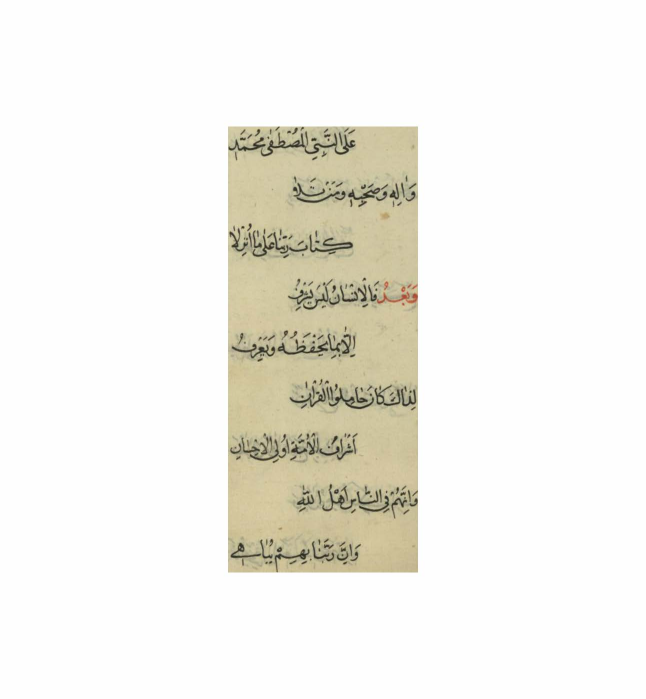 عَلَى النَّبِيِّ الْمُصْطَفٰى مُحَمَّدِ
وَاٰلِهِ وَصَحْبِهِ وَمَنْ تَلَاوْ
كِتٰابَ رَبِّنٰا عَلٰى مٰا اُنْزِلٰا
وَبَعْدُ فَالْاِنْسٰانُ لَيْسَ يَشْرُفُ
اِلَّا بِمٰا يَحْفَظُهُ وَيَعْرِفُ
لِذٰاكَ كَانَ حَامِلُوا الْقُرْاٰنِ
اَشْرَافُ الْاُمَّةِ اُولِي الْاِحْسٰانِ
وَاِنَّهُمْ فِي النَّاسِ اَهْلُ اللّٰهِ
وَاِنَّ رَبَّنٰا بِهِمْ يُبٰاهِي